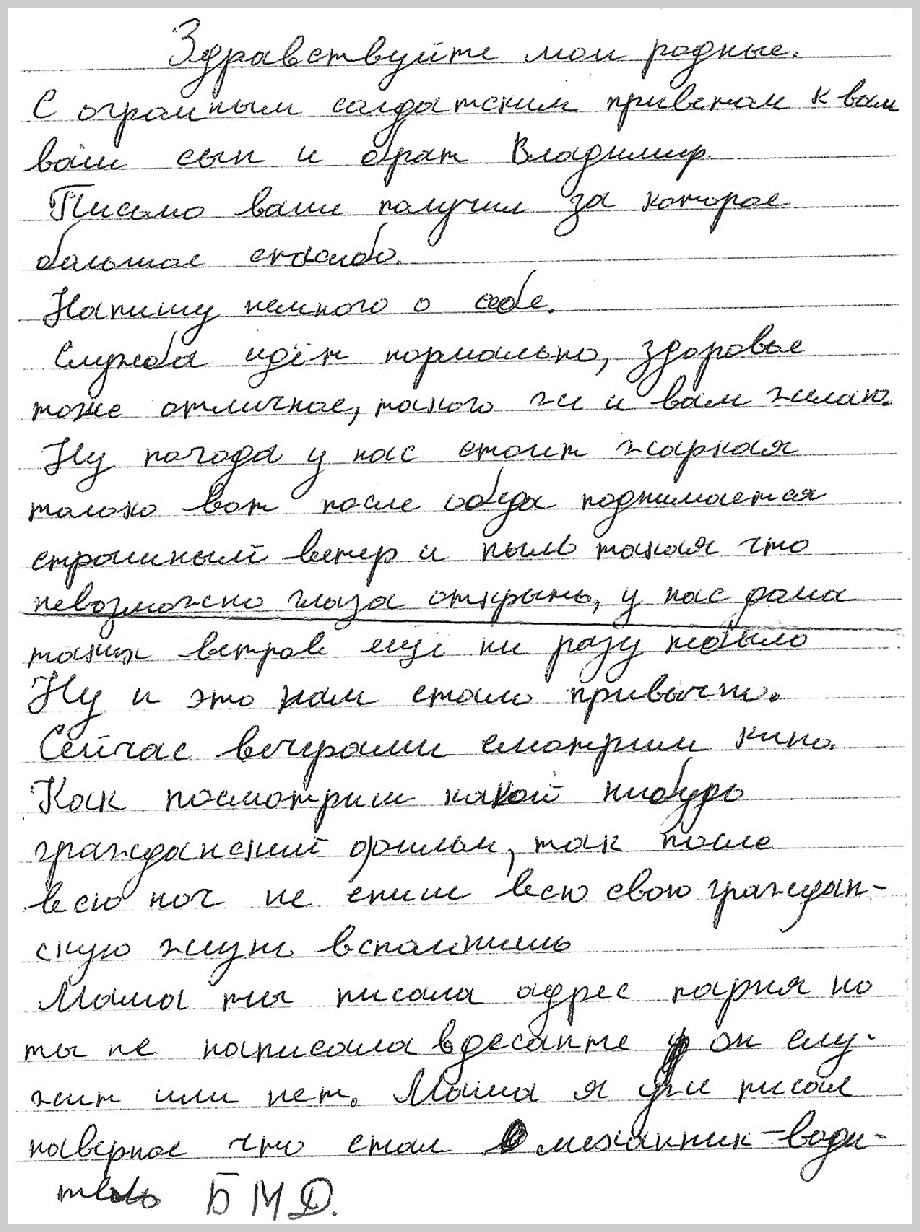 Здравствуйте мои родные.
С огромным солдатским приветом к вам
ваш сын и брат Владимир
Письмо ваше получил за которое
большое спасибо.
Напишу немного о себе.
Служба идёт нормально, здоровье
тоже отличное, такого же и вам желаю.
Ну погода у нас стоит жаркая
только вот после обеда поднимается
страшный ветер и пыль такая что
невозможно глаза открыть, у нас дома
таких ветров ещё ни разу небыло
Ну и это нам стало привычно.
Сейчас вечерами смотрим кино.
Как посмотрим какой нибудь
гражданский фильм, так после
всю ноч не спиш всю свою граждан-
скую жизнь вспомнишь
Маша ты писала адрес парня но
ты не написала в десанте он слу-
жит или нет. Маша я уже писал
наверное что стал механник-води-
тель БМД.